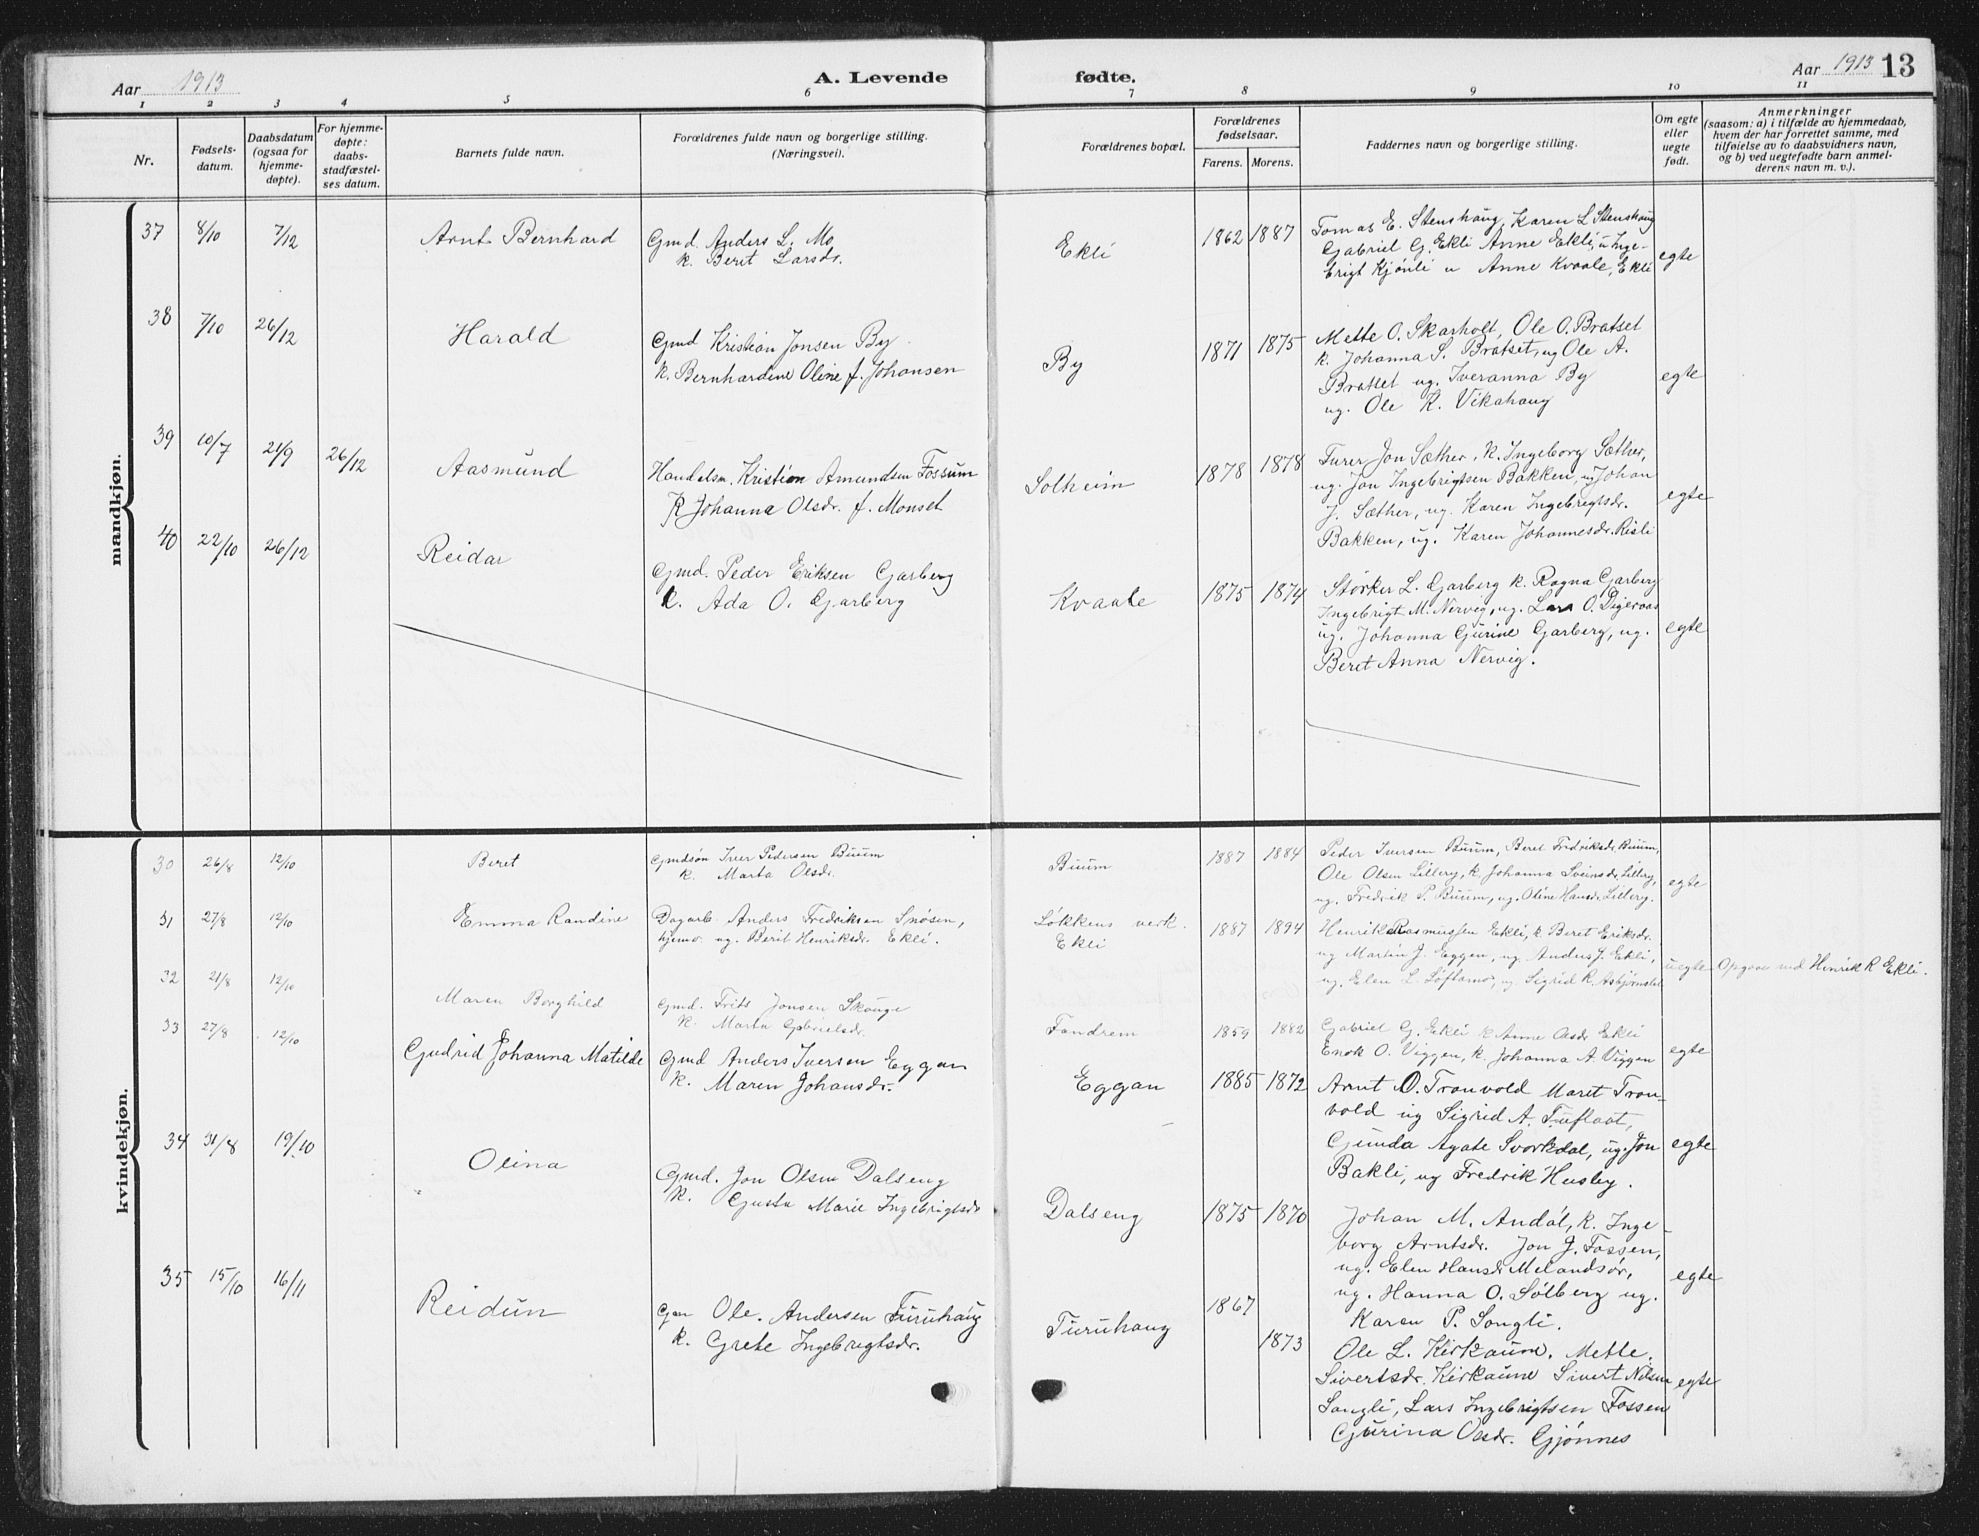 Aar 1913
A. Levende
fødte.
Aar 1913 13
1 2 3 4 5 6 7 8 9 10 11
Nr.
Fødsels-
datum.
Daabsdatum
(ogsaa for
hjemme-
døpte).
For hjemme-
døpte:
daabs-
stadfæstel-
ses datum.
Barnets fulde navn.
Forældrenes fulde navn og borgerlige stilling.
(Næringsvei).
Forældrenes bopæl.
Forældrenes
fødselsaar.
Farens. Morens.
Faddernes navn og borgerlige stilling.
Om egte
eller
uegte
født.
Anmerkninger
(saasom: a) i tilfælde av hjemmedaab,
hvem der har forrettet samme, med
tilføielse av to daabsvidners navn,
og b) ved uegtefødte barn anmel-
derens navn m. v.).
mandkjøn.
37 8/10 7/12 Arnt Bernhard
Gmd. Anders L. Mo
k. Beret Larsdr.
Ekli 1862 1887
Tomas E. Stenshaug, Karen L Stenshaug
Gabriel G. Ekli Anne Ekli, u Inge-
brigt Kjönli u Anne Kvaale, Ekli
egte
38 7/10 26/12 Harald
Gmd Kristian Jonsen By
k. Bernhardine Oline f. Johansen
By 1871 1875
Mette O. Skarholt, Ole O. Bratset
k. Johanna S. Bratset, ug Ole A.
Brattet ug. Iveranna By
ug. Ole K. Vikahaug
egte
39 10/7 21/9 26/12 Aasmund
Handelsm. Kristian Amundsen Fossum
K Johanna Olsdr. f. Monset
Solheim 1878 1878
Furer Jon Sæther, k. Ingeborg Sæther,
ug. Jon Ingebrigtsen Bakken, ug Johan
J. Sæther, ug. Karen Ingebregtsdr.
Bakken, ug. Karen Johannesdr. Risli
egte
40 22/10 26/12 Reidar
Gmd. Peder Eriksen Garberg
k. Ada O. Garberg
Kvaale 1875 1874
Störker L. Garberg k. Ragna Garberg
Ingebrigt M. Nervig, ug. Lars O. Digeraas
ug. Johanna Gurine Garberg, ug.
Beret Anna Nervig.
egte
kvindekjøn.
30 26/8 12/10 Beret
Gmdsøn Iver Pedersen Buum
k. Marta Olsdr.
Buum 1887 1884
Peder Iversen Buum, Beret Fredriksdr Buum,
Ole Olsen Lillery, k. Johanna Sveinsdr. Lillery,
ug. Fredrik P. Buum, ug. Oline Hansdr. Lillery.
egte
31 27/8 12/10 Emma Randine
Dagarb. Anders Fredriksen Snösen,
hjemv. ug. Berit Henriksdr. Ekli.
Lökkens verk.
Ekli
1887 1894
Henrik Rasmussen Ekli, k. Beret Eriksdr.
ug Martin J. Eggen, ug. Anders J. Ekli,
ug. Elen L. Söftamo, ug. Sigrid R. Asbjørnslet
uegte Opgave ved Henrik R Ekli.
32 21/8 12/10 Maren Borghild
Gmd. Frits Jonsen Skauge
k. Marta Gabrielsdr.
Fandrem 1859 1882
Gabriel G. Ekli k Anne Oldr Ekli
Enok O. Viggen, k. Johanna A. Viggen
egte
33 27/8 12/10 Gudrid Johanna Matilde
Gmd Anders Iversen Eggan
k. Maren Johansdr.
Eggan 1885 1872
Arnt O. Tronvold Maret Tron-
vold ug Sigrid A. Tuflaat,
Gunda Agate Svorkdal, ug Jon
Bakli, ug Fredrik Husby.
egte
34 31/8 19/10 Olina
Gmd. Jon Olsen Dalseng
k. Gusta Marie Ingebrigtsdr
Dalseng 1875 1870
Johan M. Andöl, k. Inge-
borg Arntsdr. Jon J. Fossen,
ug. Elen Hansdr Melandsør,
ug. Hanna O. Sölberg ug.
Karen P. Songli.
egte
35 15/10 16/11 Reidun
Gm Ole Andersen Furuhaug
k. Grete Ingebrigtsdr.
Furuhaug 1867 1873
Ole L. Kirkaune. Mette
Sivertsdr. Kirkaune Sivert Nilsen
Songli, Lars Ingebrigtsen Fossen
Gjurina Olsdr. Gjönnes
egte